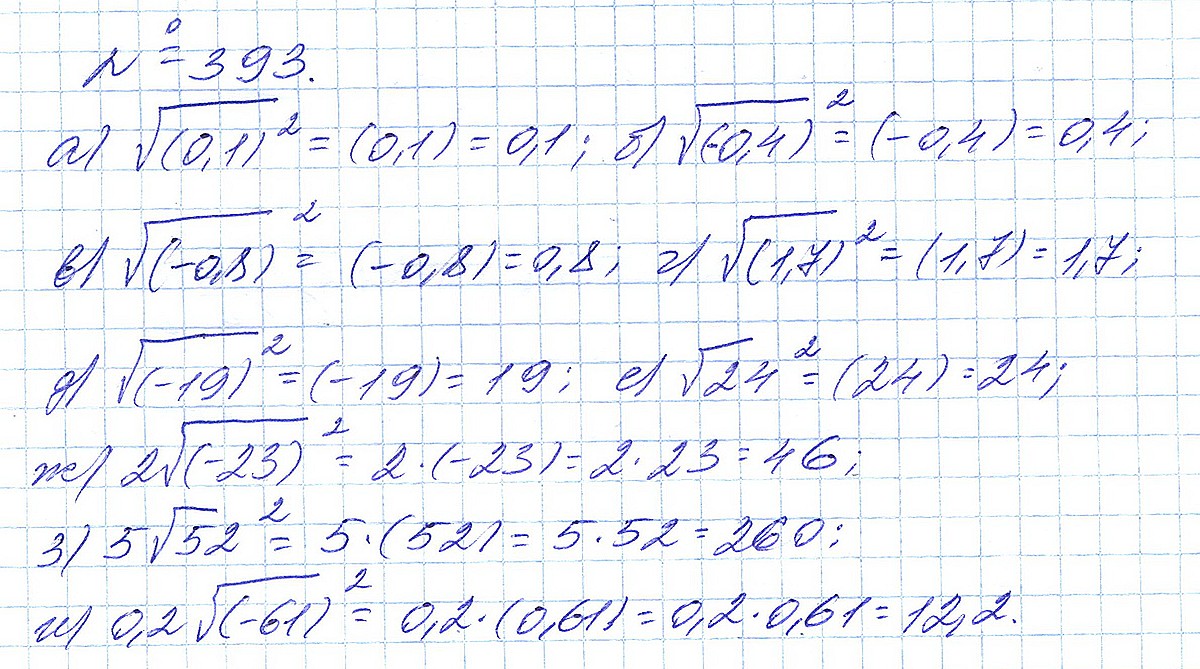 № 393.
а) √(0,1)² = (0,1) = 0,1; б) √(-0,4)² = (-0,4) = 0,4;
в) √(-0,8)² = (-0,8) = 0,8; г) √(1,7)² = (1,7) = 1,7;
д) √(-19)² = (-19) = 19; е) √24² = (24) = 24;
ж) 2√(-23)² = 2·(-23) = 2·23 = 46;
з) 5√52² = 5·(52) = 5·52 = 260;
и) 0,2√(-61)² = 0,2·(0,61) = 0,2·0,61 = 12,2.